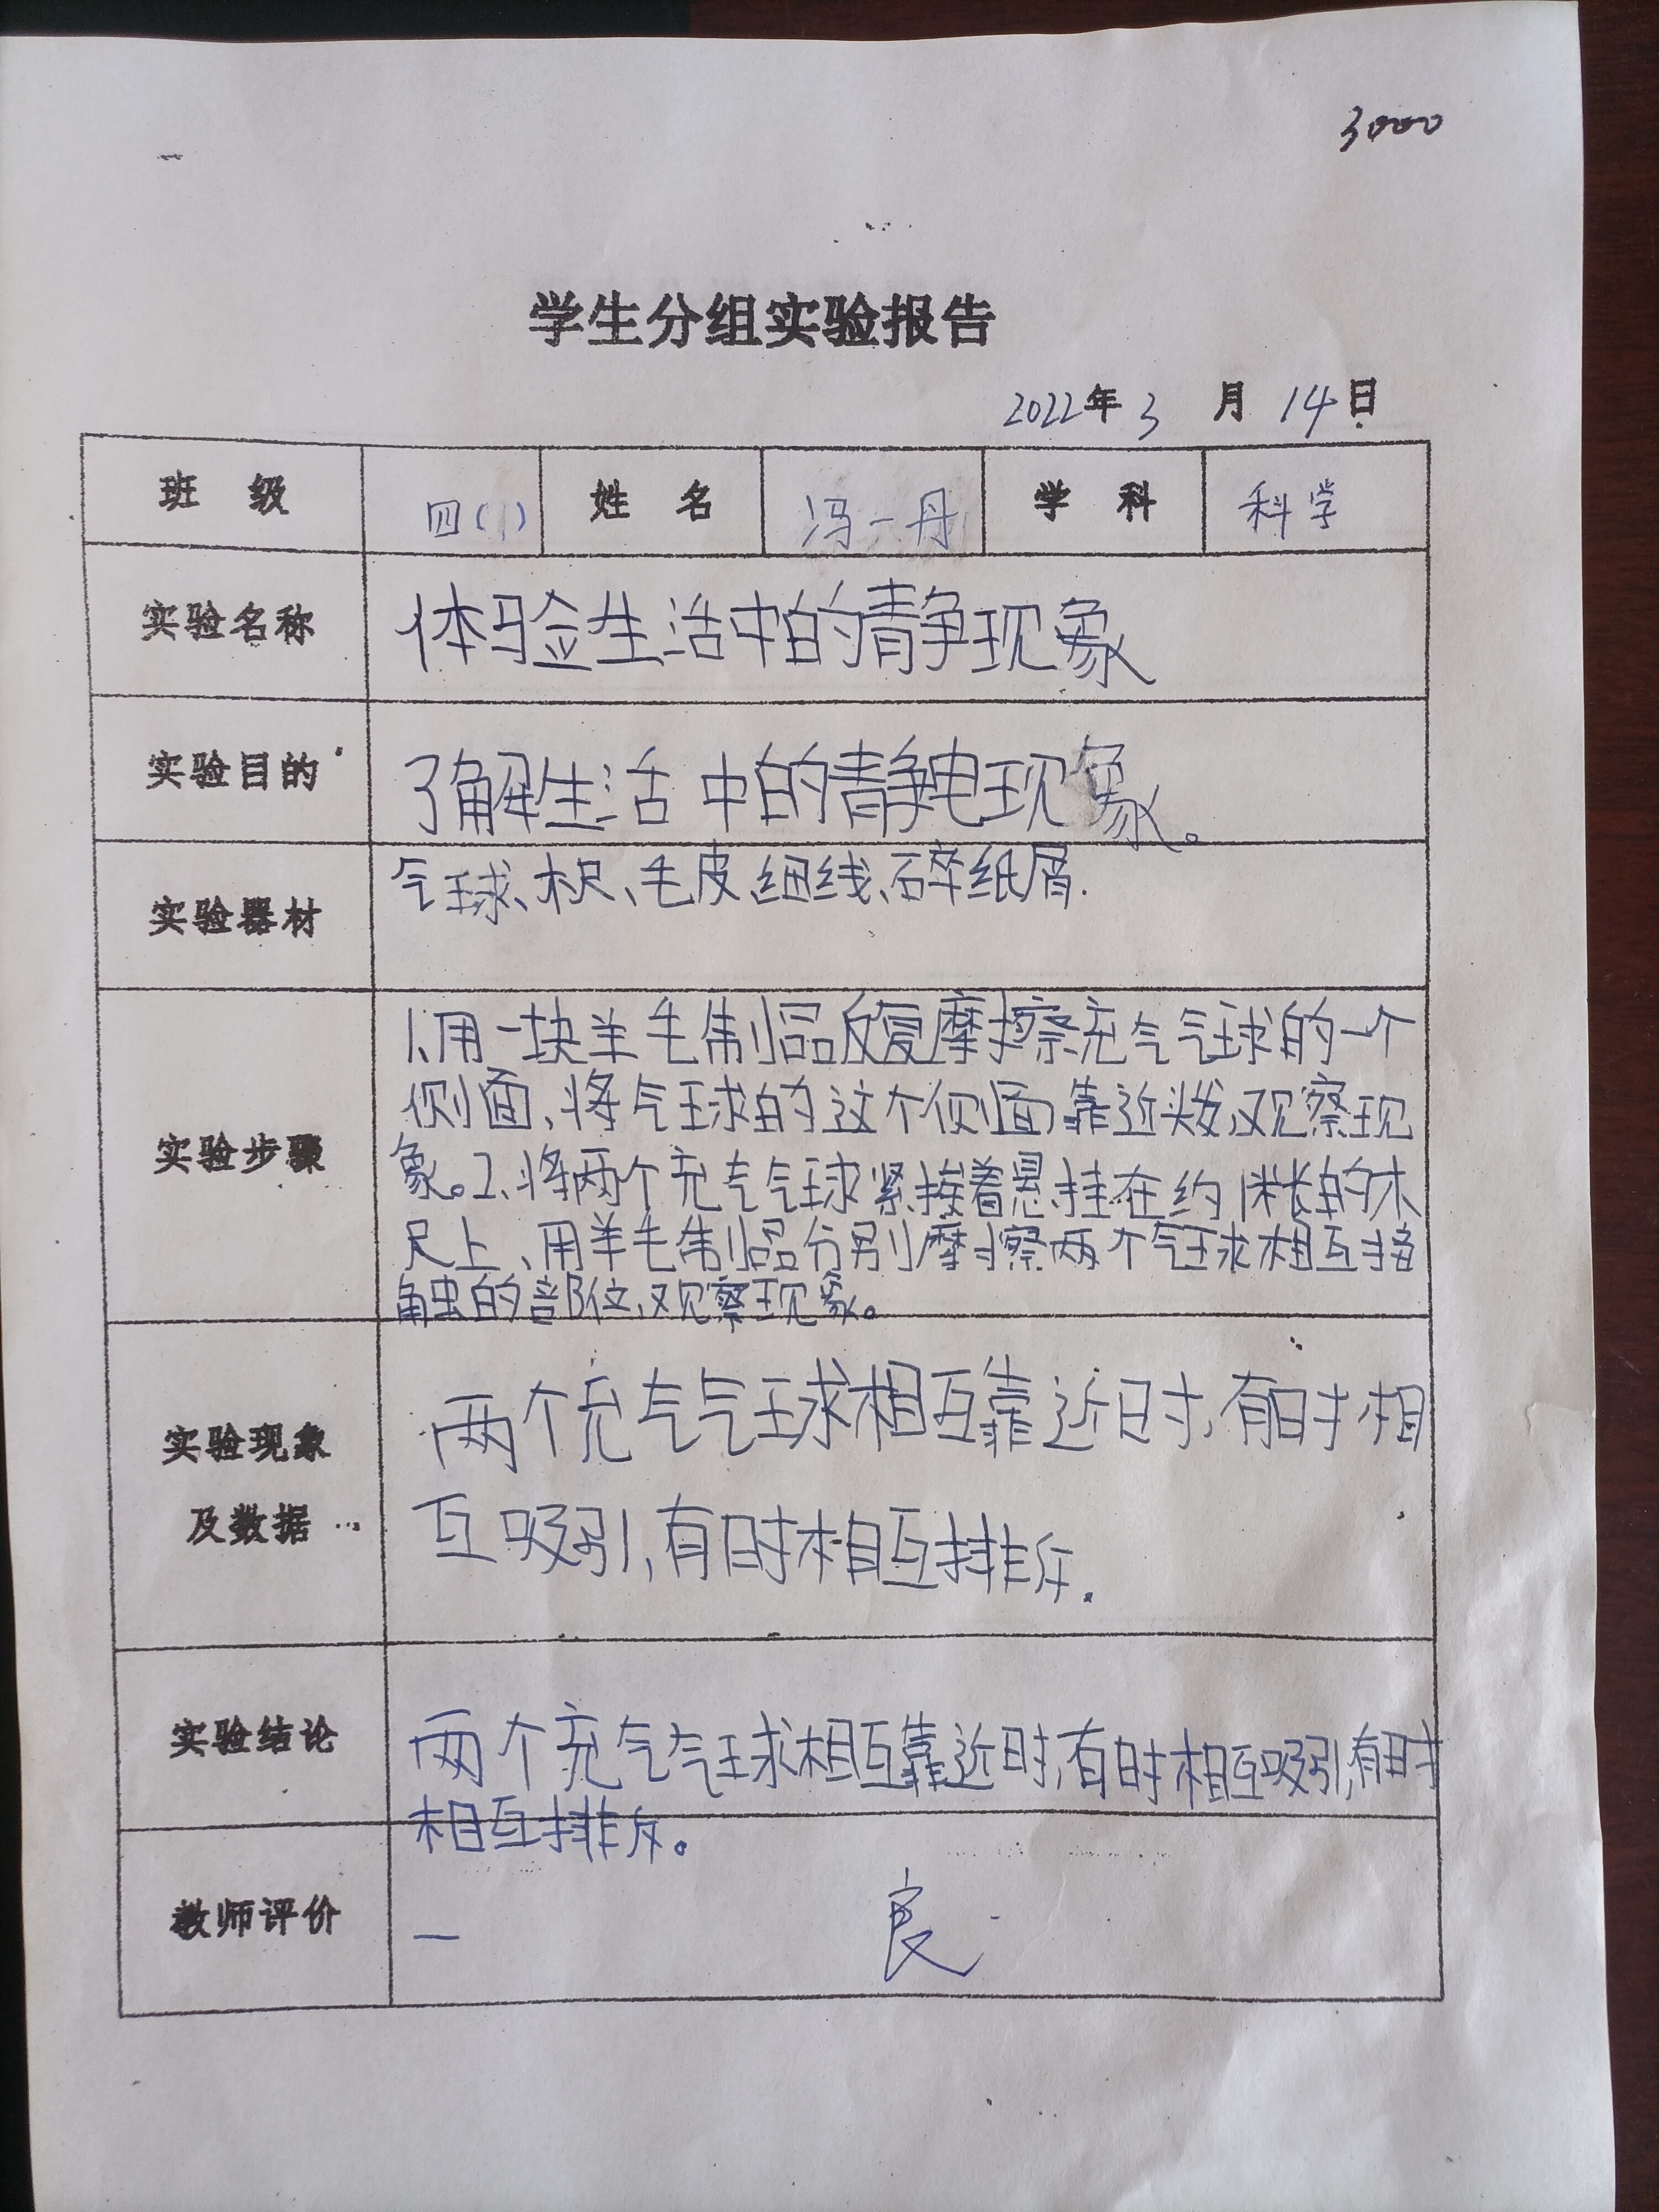 3000
学生分组实验报告
2022年3月14日
班 级 四(1) 姓 名 冯一丹 学 科 科学
实验名称 体验生活中的静现象
实验目的 了解生活中的静电现象。
实验器材 气球、木尺、毛皮、细线、碎纸屑.
实验步骤
1、用一块羊毛制品反复摩擦充气气球的一个
侧面、将气球的这个侧面靠近头发,观察现
象。2、将两个充气气球紧挨着悬挂在约1米长的木
尺上、用羊毛制品分别摩擦两个气球相互接
触的部位,观察现象。
实验现象
及数据
两个充气气球相互靠近时,有时相
互吸引,有时相互排斥.
实验结论
两个充气气球相互靠近时,有时相互吸引,有时
相互排斥。
教师评价 良